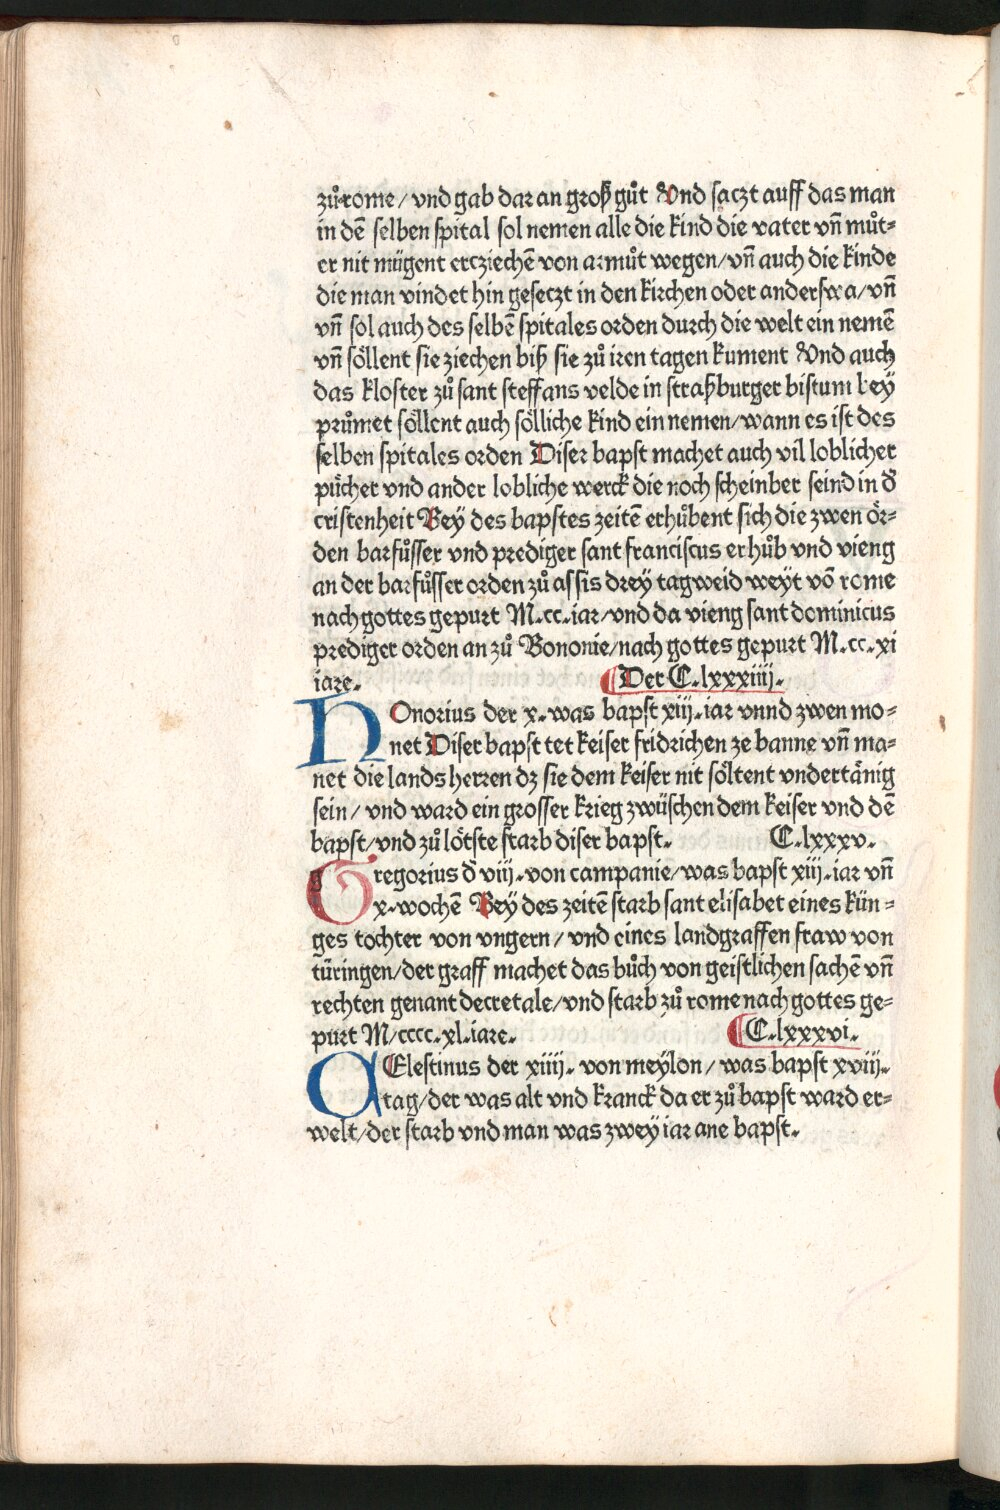 zů rome / vnd gab dar an groß gůt Vnd saczt auff das man
in dē selben spital sol nemen alle die kind die vater vn̄ můt-
er nit mügent ercziechē von armůt wegen/vn̄ auch die kinde
die man vindet hin geseczt in den kirchen oder anderswa/vn̄
vn̄ sol auch des selbē spitales orden durch die welt ein nemē
vn̄ söllent sie ziechen biß sie zů iren tagen kument Vnd auch
das kloster zů sant steffans velde in straßburger bistum bey
průmet söllent auch sölliche kind ein nemen/wann es ist des
selben spitales orden Diser bapst machet auch vil loblicher
pücher vnd ander lobliche werck die noch scheinber seind in d̄
cristenheit Bey des bapstes zeitē erhůbent sich die zwen ör-
den barfůsser vnd prediger sant franciscus erhůb vnd vieng
an der barfůsser orden zů assis drey tagweid weyt vō rome
nach gottes gepurt M.cc.iar/vnd da vieng sant dominicus
prediger orden an zů Bononie/nach gottes gepurt M.cc.xi
iare. Der C.lxxxiiij.
HOnorius der x. was bapst xiij.iar vnnd zwen mo-
net Diser bapst tet keiser fridrichen ze banne vn̄ ma-
net die lands herren dz sie dem keiser nit söltent vndertänig
sein/ vnd ward ein grosser krieg zwüschen dem keiser vnd dē
bapst/vnd zů lötste starb diser bapst. C.lxxxv.
Gregorius d̄ viij. von campanie/was bapst xiij.iar vn̄
x.wochē Bey des zeitē starb sant elisabet eines kün-
ges tochter von vngern / vnd eines landgraffen fraw von
türingen/der graff machet das bůch von geistlichen sachē vn̄
rechten genant decretale/vnd starb zů rome nach gottes ge-
purt M/cccc.xl.iare. C.lxxxvi.
CElestinus der xiiij. von meylon/ was bapst xviij.
tag/der was alt vnd kranck da er zů bapst ward er-
welt/der starb vnd man was zwey iar ane bapst.